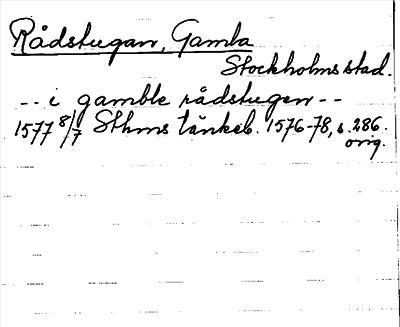 Rådstugan, Gamla
Stockholms stad.
-- i gamble rådstugen --
1577 8/7 Sthms tänkeb. 1576-78, s. 286.
orig.